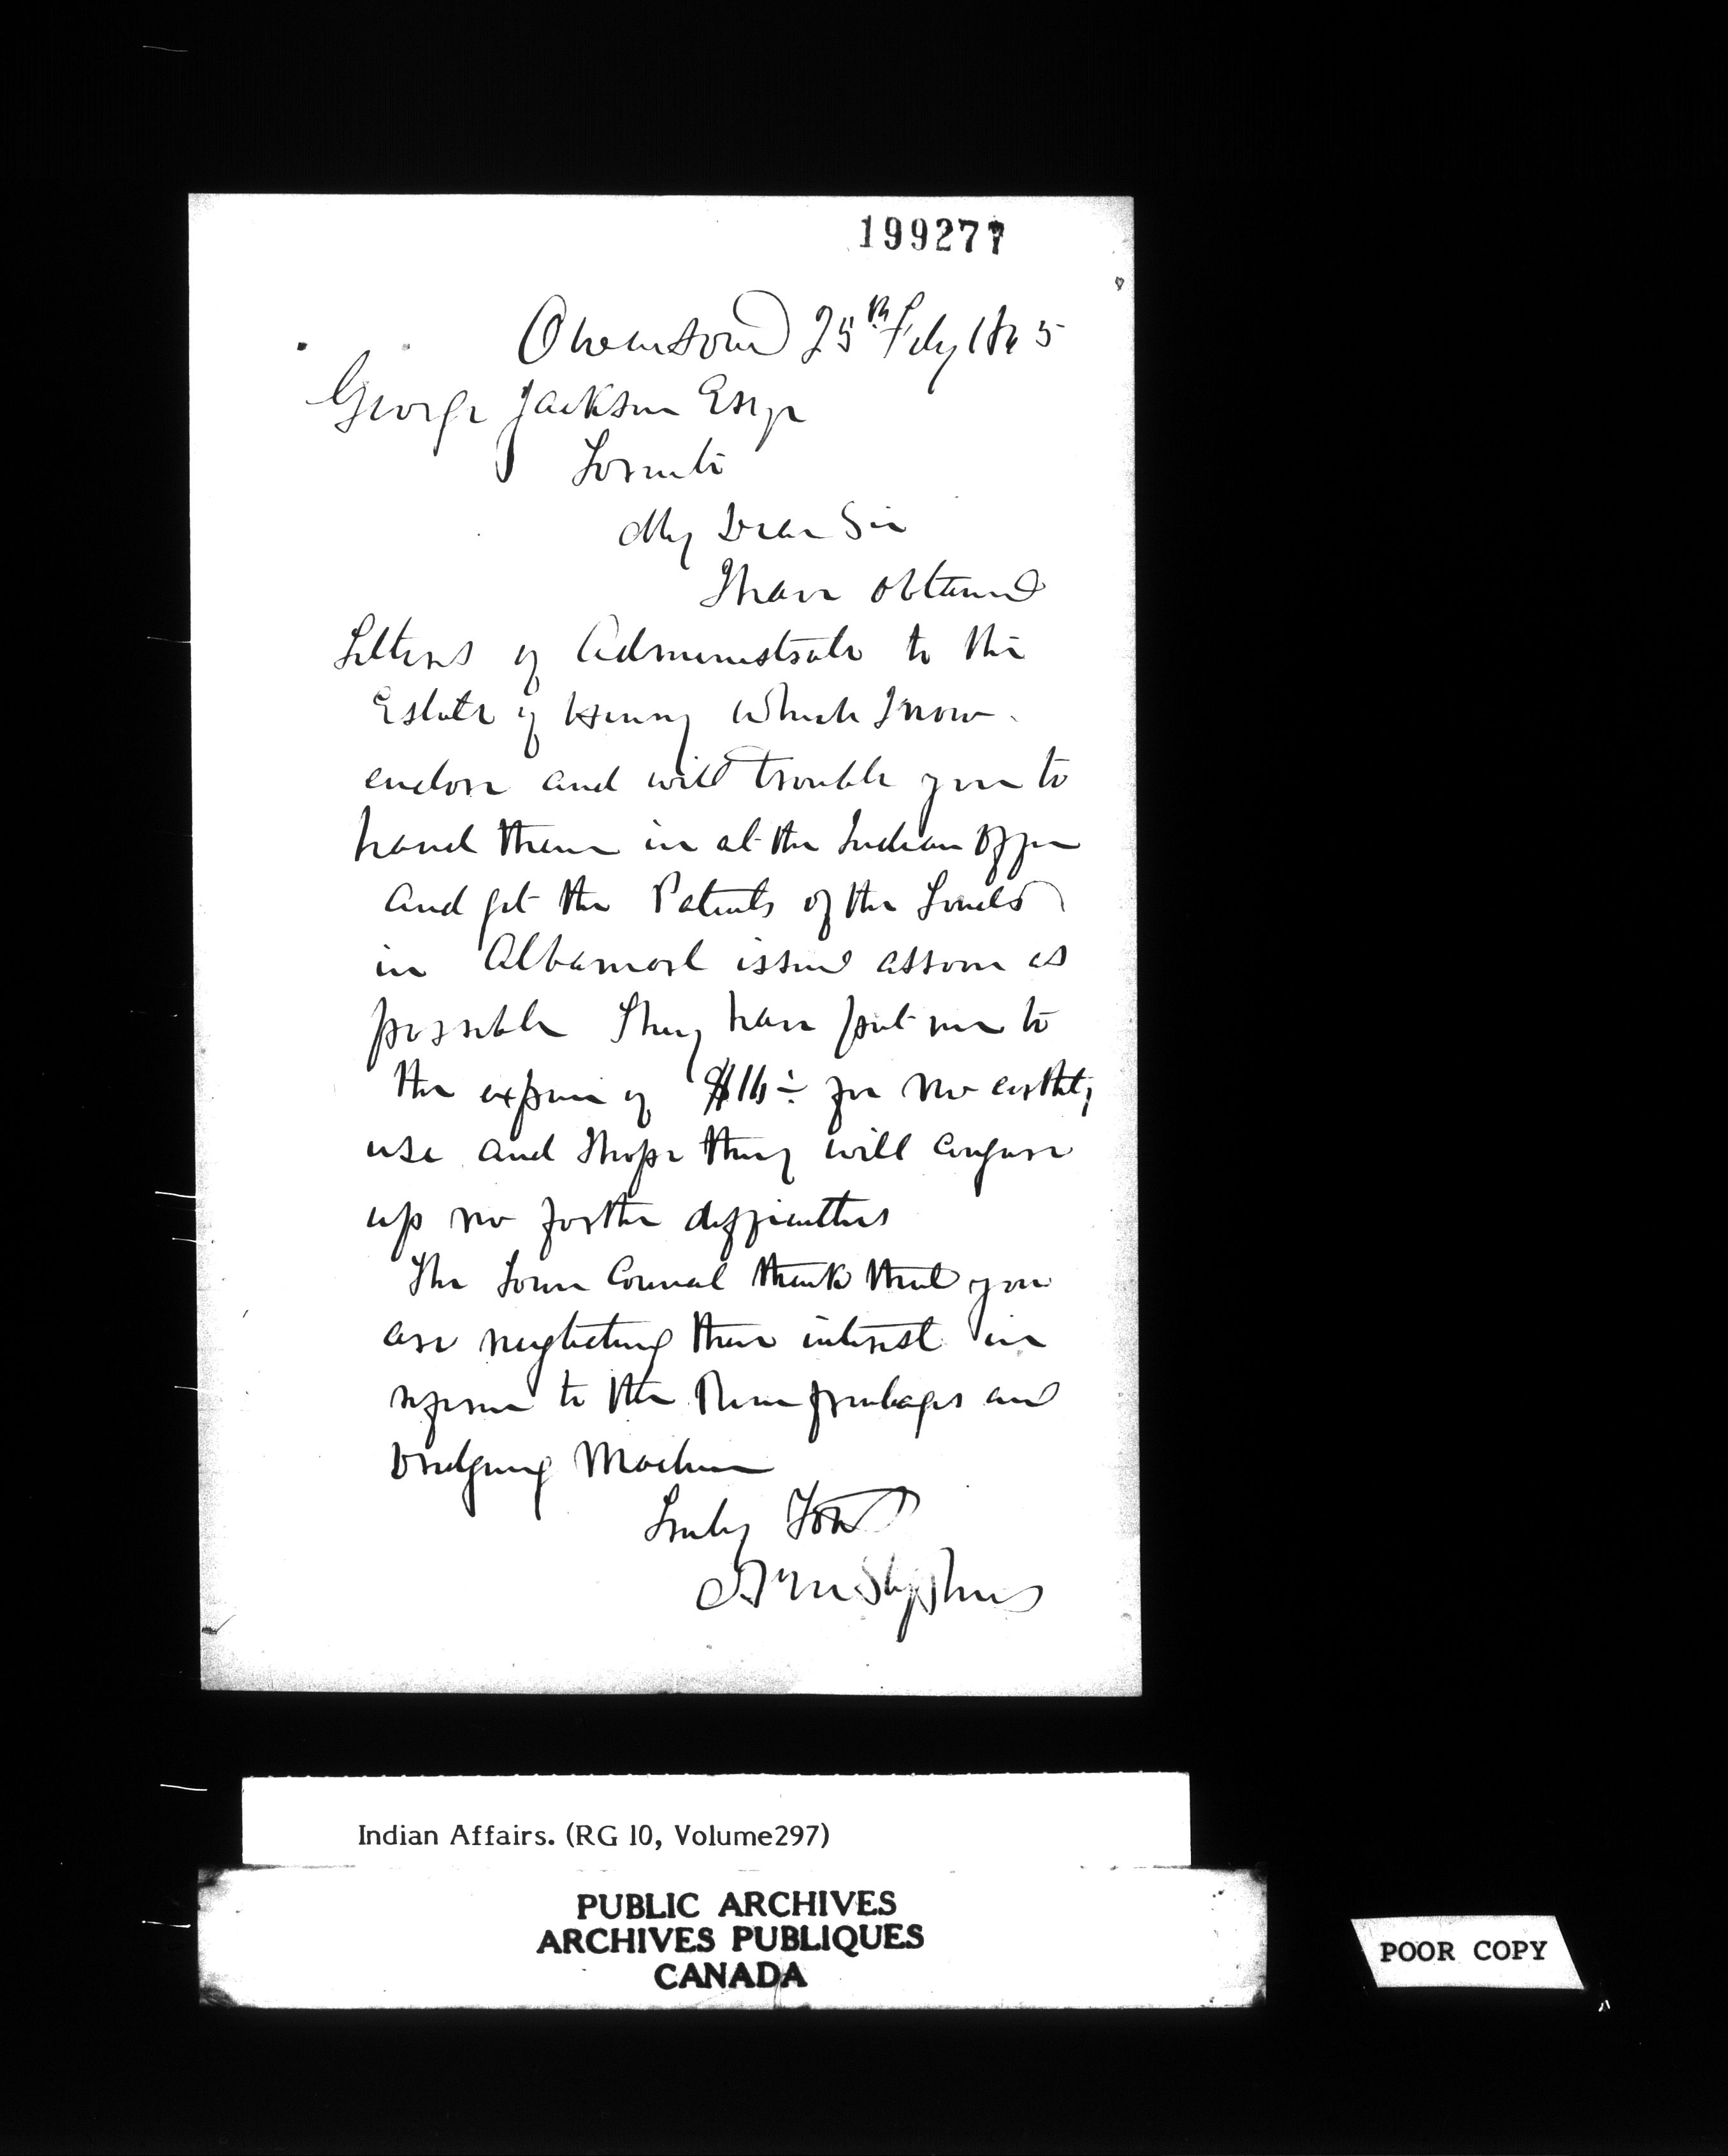 199277
Owensound 25th Feby 1865
George Jackson Esqr
Toronto
My Dear Sir
I have obtained
Letters of Administrate to the
Estate of Henry which I now
enclose and will trouble you to
hand them in at the Indian Office
and get the Patents of the Lands
in Albamarl issued assoon as
possible They have put me to
the expense of $16 for no earthly
use and I hope they will conjure
up no further difficulties
The Town Council think that you
are neglecting their interest in
to the and
Dredging Machine
Truly Yours
Stephens
Indian Affairs. (RG 10, Volume297)
PUBLIC ARCHIVES
ARCHIVES PUBLIQUES
CANADA
POOR COPY